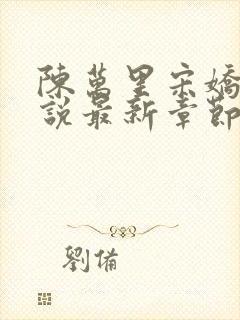 陳萬里宋嬌
說最新章節
劉備